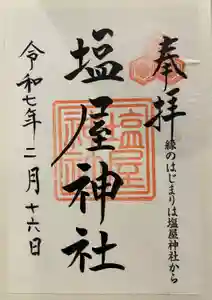 奉拝
縁のはじまりは塩屋神社から
塩屋神社
令和七年二月十六日